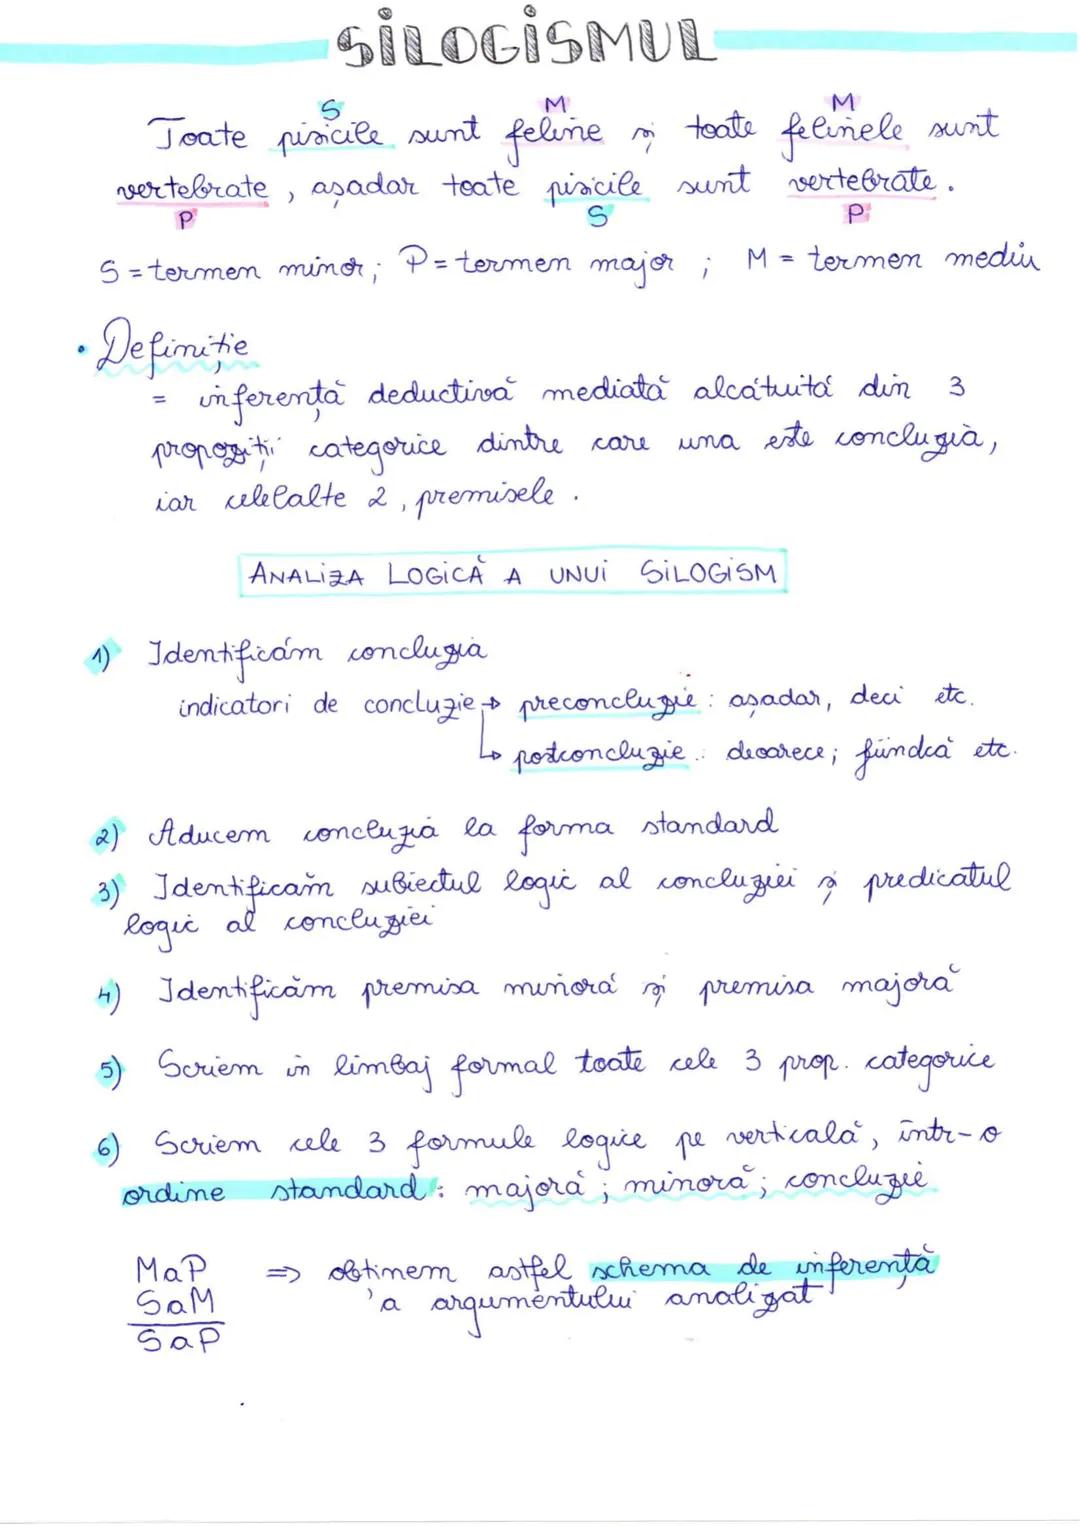 SiLOGiSMUL
S M M
Toate pisicile sunt feline și toate felinele sunt
vertebrate, așadar toate pisicile sunt vertebrate.
P S P
S = termen minor; P = termen major ; M = termen mediu
• Definiție
= inferență deductivă mediată alcătuită din 3
propoziții categorice dintre care una este concluzia,
iar celelalte 2, premisele.
ANALiZA LOGiCĂ A UNUi SiLOGiSM
1) Identificăm concluzia
indicatori de concluzie → preconcluzie: așadar, deci etc.
↳ postconcluzie: deoarece; fiindcă etc.
2) Aducem concluzia la forma standard
3) Identificăm subiectul logic al concluziei și predicatul
logic al concluziei
4) Identificăm premisa minoră și premisa majoră
5) Scriem in limbaj formal toate cele 3 prop. categorice
6) Scriem cele 3 formule logice pe verticală, într-o
ordine standard: majoră; minoră; concluzie
MaP => obținem astfel schema de inferență
SaM a argumentului analizat
SaP